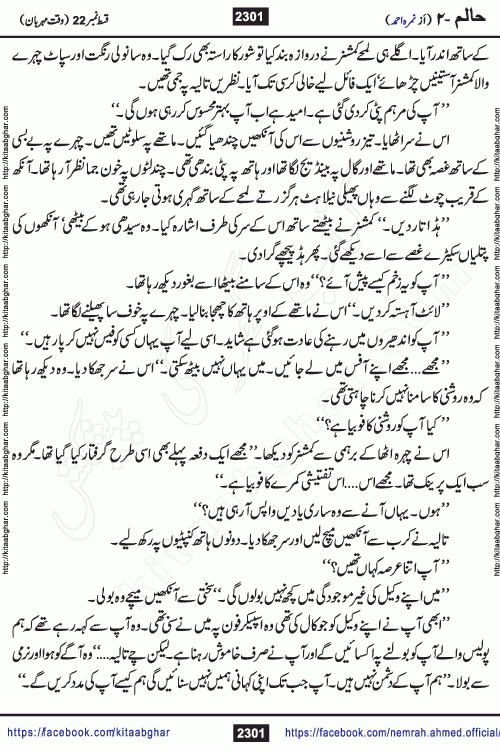 حالم ۔ ۲ (از نمرہ احمد) 2301 قسط نمبر 22 (وقت مہربان)
کے ساتھ اندر آیا۔ اگلے ہی لمحے کمشنر نے دروازہ بند کیا تو شور کا راستہ بھی رک گیا۔ وہ سانولی رنگت اور سپاٹ چہرے
والا کمشنر آستینیں چڑھائے ایک فائل لیے خالی کرسی تک آیا۔ نظریں تالیہ پہ جمی تھیں۔
’’آپ کی مرہم پٹی کر دی گئی ہے۔ امید ہے اب آپ بہتر محسوس کر رہی ہوں گی۔‘‘
اس نے سر اٹھایا۔ تیز روشنیوں سے اس کی آنکھیں چندھیا گئیں۔ ماتھے پہ سلوٹیں تھیں۔ چہرے پہ بے بسی
کے ساتھ غصہ بھی تھا۔ ماتھے اور گال پہ بینڈیج لگا تھا اور ہاتھ پہ پٹی بندھی تھی۔ چند لٹوں پہ خون جما نظر آرہا تھا۔ آنکھ
کے قریب چوٹ لگنے سے وہاں پھیلی نیلاہٹ ہر گزرتے لمحے کے ساتھ گہری ہوتی جا رہی تھی۔
’’ہڈ اتار دیں۔‘‘ کمشنر نے بیٹھتے ساتھ اس کے سر کی طرف اشارہ کیا۔ وہ سیدھی ہو کے بیٹھی‘ آنکھوں کی
پتلیاں سکیڑے غصے سے اسے دیکھے گئی۔ پھر ہڈ پیچھے گرا دی۔
’’آپ کو یہ زخم کیسے پیش آئے؟‘‘ وہ اس کے سامنے بیٹھا اسے بغور دیکھ رہا تھا۔
’’لائٹ آہستہ کر دیں۔‘‘ اس نے ماتھے کے اوپر ہاتھ کا چھجا بنا لیا۔ چہرے پہ خوف سا پھیلنے لگا تھا۔
’’آپ کو اندھیروں میں رہنے کی عادت ہو گئی ہے شاید۔ اسی لیے آپ یہاں کسی کو فیس نہیں کر پا رہیں۔‘‘
’’مجھے.... مجھے اپنے آفس میں لے جائیں۔ میں یہاں نہیں بیٹھ سکتی۔‘‘ اس نے سر جھکا دیا۔ وہ دیکھ رہا تھا
کہ وہ روشنی کا سامنا نہیں کرنا چاہتی تھی۔
’’کیا آپ کو روشنی کا فوبیا ہے؟‘‘
اس نے چہرہ اٹھا کے برہمی سے کمشنر کو دیکھا۔ ’’مجھے ایک دفعہ پہلے بھی اسی طرح گرفتار کیا گیا تھا۔ مگر وہ
سب ایک پرینک تھا۔ مجھے اس.... اس تفتیشی کمرے کا فوبیا ہے۔‘‘
’’ہوں۔ یہاں آنے سے وہ ساری یادیں واپس آ رہی ہیں؟‘‘
تالیہ نے کرب سے آنکھیں میچ لیں اور سر جھکا دیا۔ دونوں ہاتھ کنپٹیوں پہ رکھ لیے۔
’’آپ اتنا عرصہ کہاں تھیں؟‘‘
’’میں اپنے وکیل کی غیر موجودگی میں کچھ نہیں بولوں گی۔‘‘ سختی سے آنکھیں میچے وہ بولی۔
’’ابھی آپ نے اپنے وکیل کو جو کال کی تھی وہ اسپیکر فون پہ میں نے سنی تھی۔ وہ آپ سے کہہ رہے تھے کہ ہم
پولیس والے آپ کو بولنے پہ اکسائیں گے اور آپ نے صرف خاموش رہنا ہے۔ لیکن چے تالیہ....‘‘ وہ آگے کو ہوا اور نرمی
سے بولا۔ ’’ہم آپ کے دشمن نہیں ہیں۔ آپ جب تک اپنی کہانی ہمیں نہیں سنائیں گی ہم کیسے آپ کی مدد کریں گے۔‘‘
https://facebook.com/kitaabghar 2301 https://facebook.com/nemrah.ahmed.official/
http://kitaabghar.com